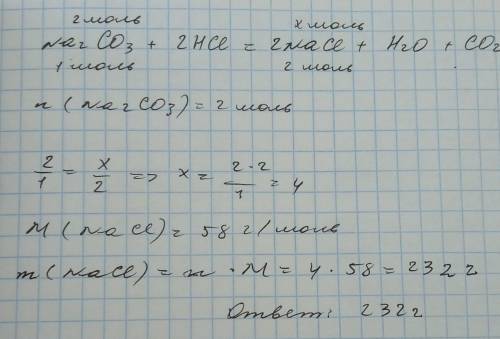 2 моль x моль
Na2CO3 + 2HCl = 2NaCl + H2O + CO2
1 моль 2 моль
n (Na2CO3) = 2 моль
2/1 = x/2 => x = 2·2/1 = 4
M (NaCl) = 58 г/моль
m (NaCl) = n · M = 4 · 58 = 232 г
Ответ: 232 г